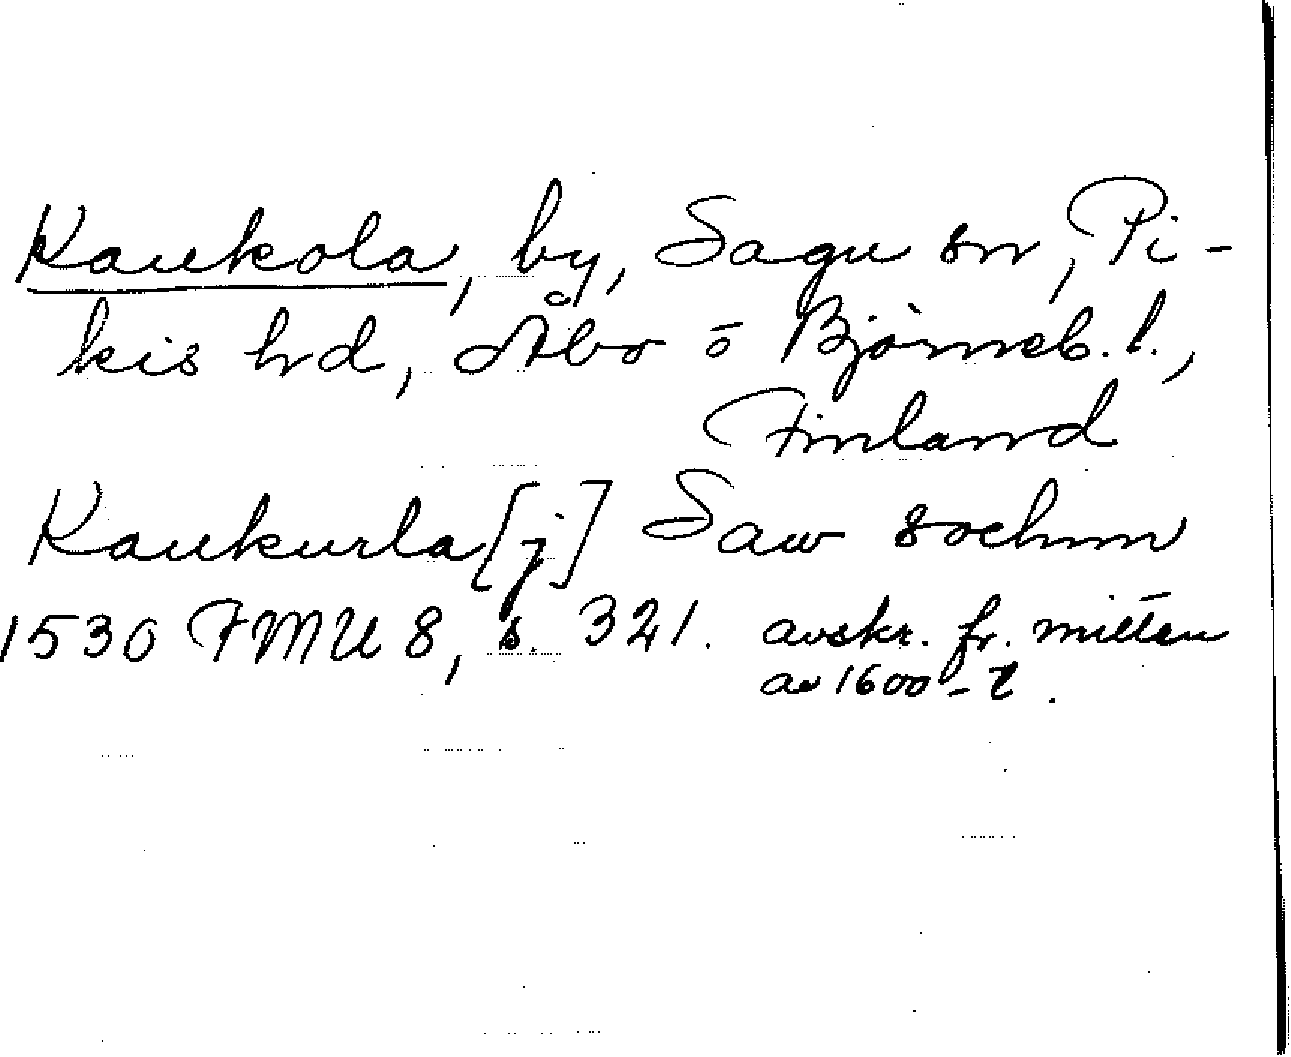 Kaukola, by, Sagu sn, Pi-
kis hd, Åbo o Björneb. l.,
Finland
Kaukurla [j] Saw sochnn
1530 FMU 8, s. 321. avskr. fr. mitten
av 1600-t.